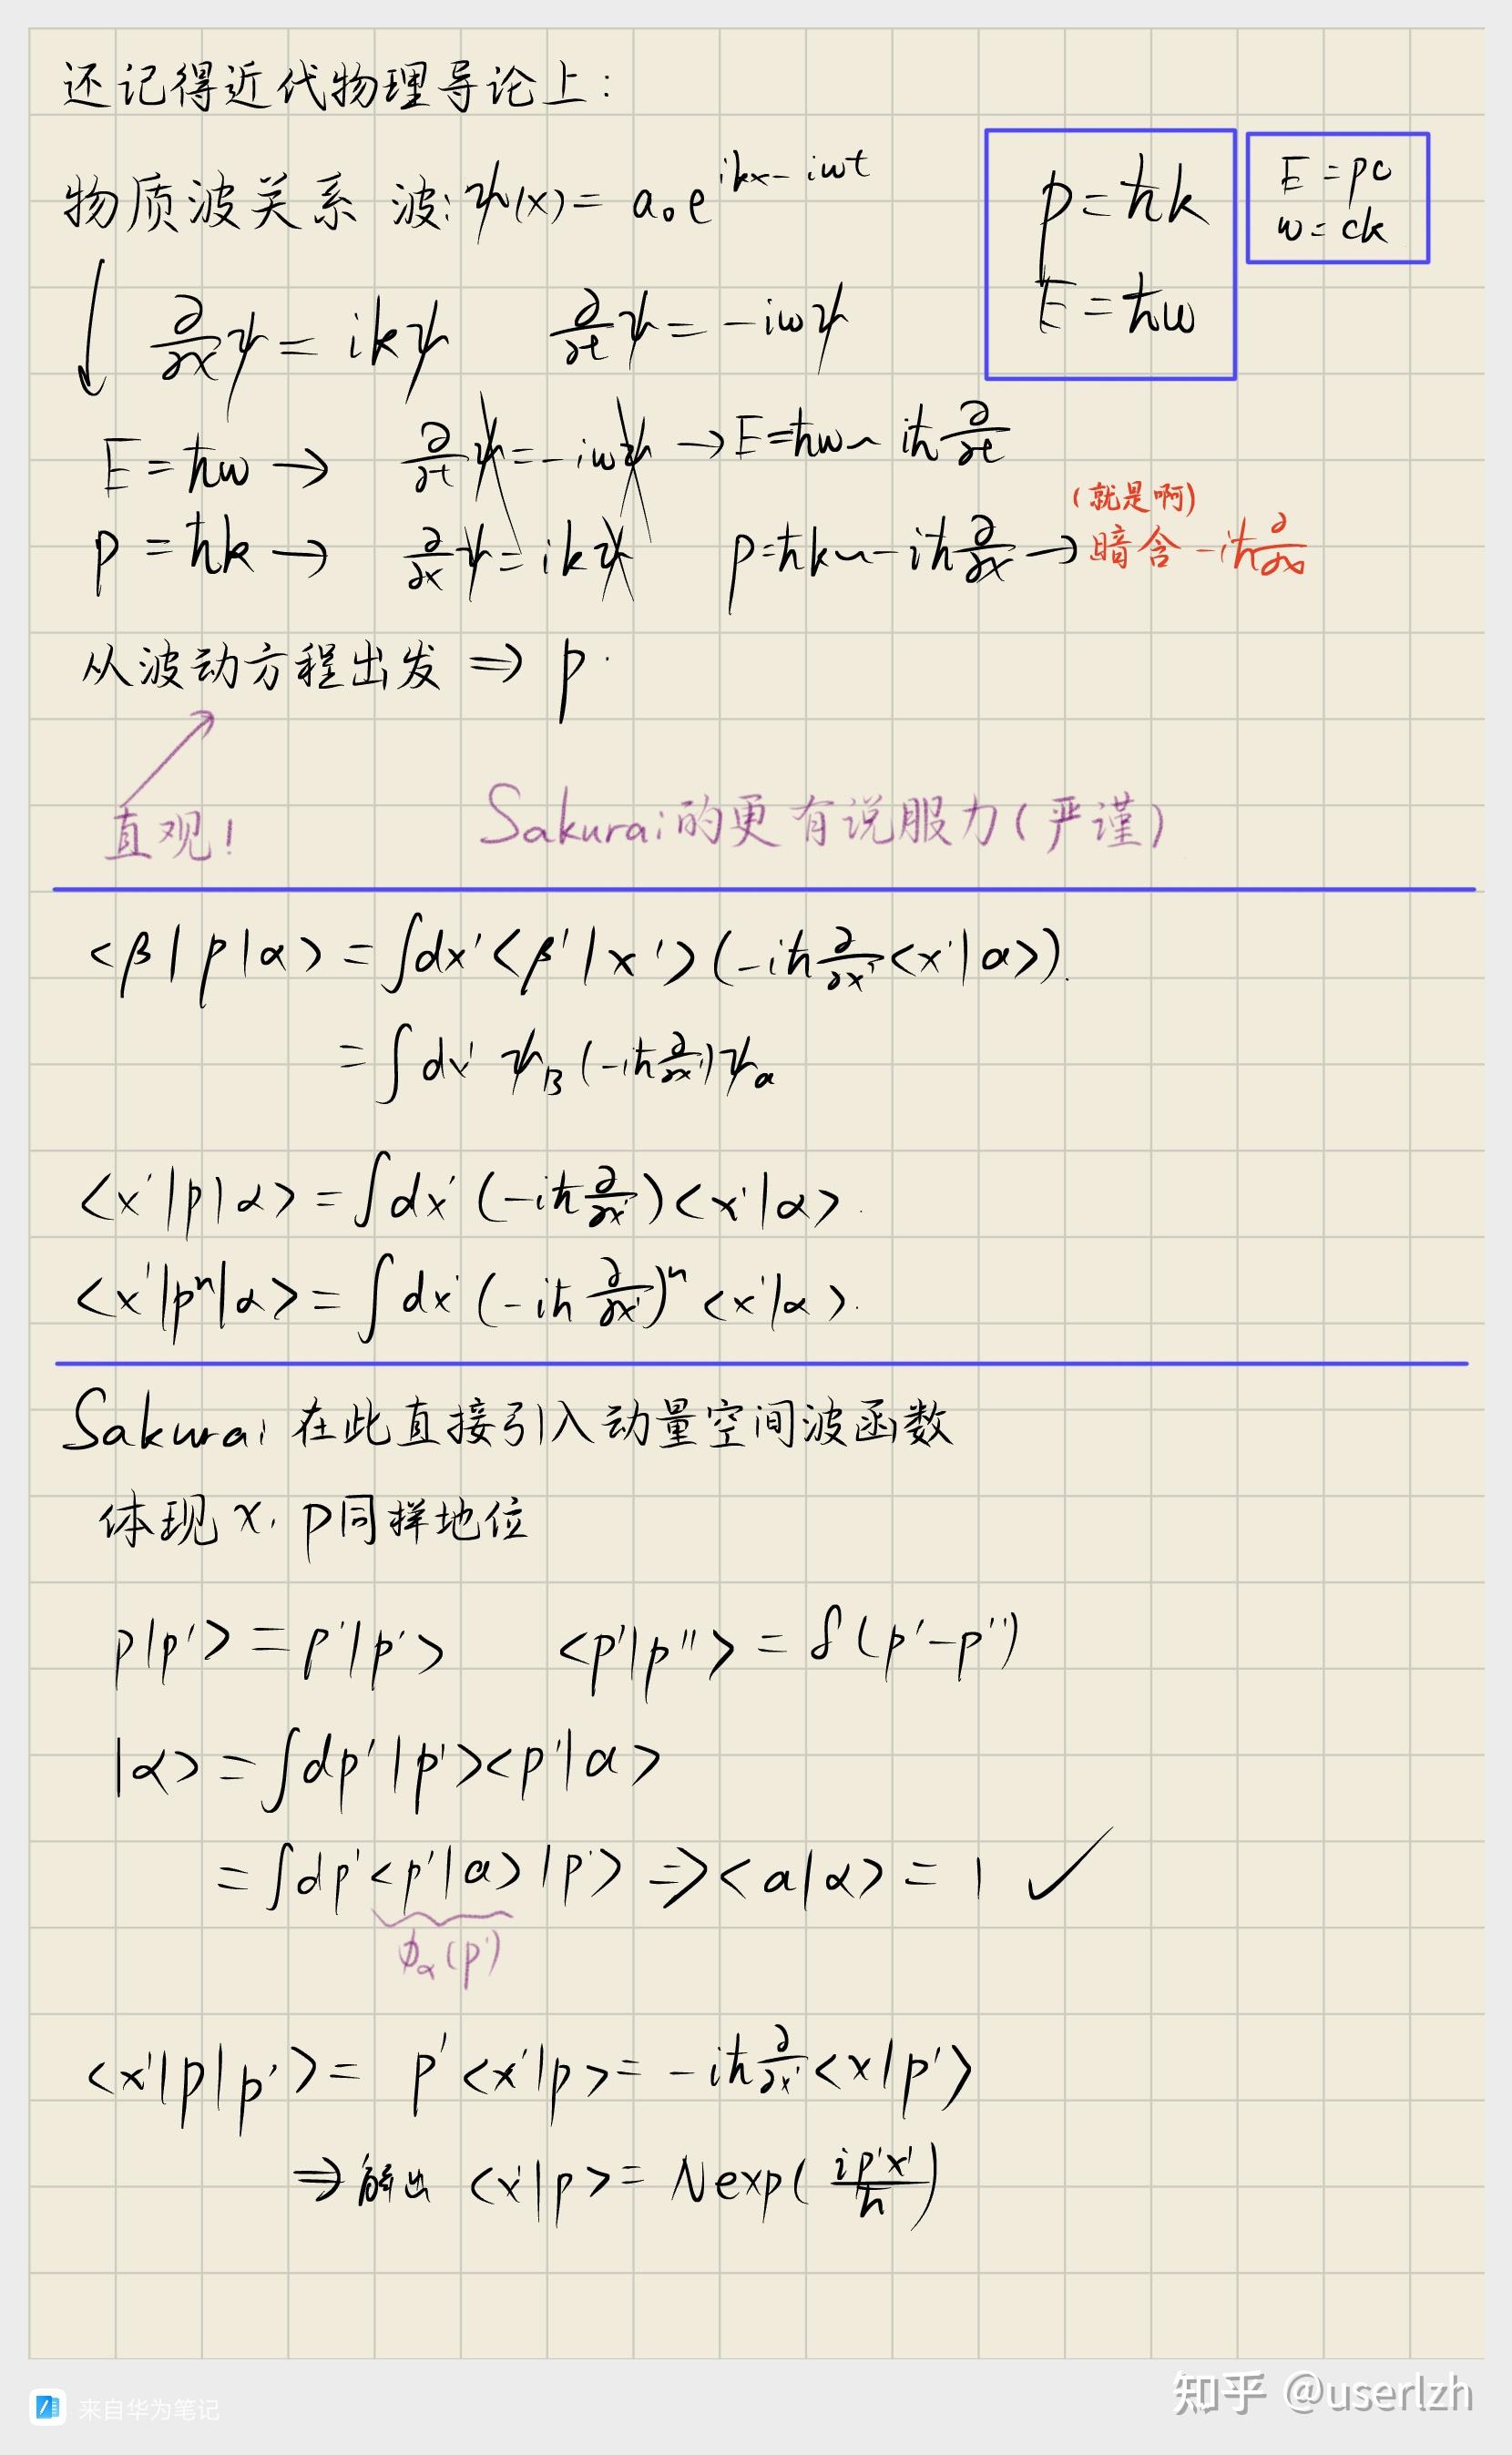 还记得近代物理导论上:
物质波关系 波: ψ(x) = a₀e^{ikx-iωt}
p=ħk
E=ħω
E=pc
ω=ck
∂/∂x ψ = ikψ ∂/∂t ψ = -iωψ
E=ħω → ∂/∂t ψ = -iωψ → E=ħω ~ iħ ∂/∂t
(就是啊)
p=ħk → ∂/∂x ψ = ikψ p=ħk ~ -iħ ∂/∂x → 暗含 -iħ ∂/∂x
从波动方程出发 ⇒ p
直观! Sakurai的更有说服力(严谨)
<β|p|α> = ∫dx'<β'|x'>(-iħ ∂/∂x' <x'|α>).
= ∫dx' ψ_β (-iħ ∂/∂x') ψ_α
<x'|p|α> = ∫dx' (-iħ ∂/∂x')<x'|α>.
<x'|pⁿ|α> = ∫dx' (-iħ ∂/∂x')ⁿ <x'|α>.
Sakurai 在此直接引入动量空间波函数
体现 x, p同样地位
p|p'> = p'|p'> <p'|p''> = δ(p'-p'')
|α> = ∫dp' |p'><p'|α>
= ∫dp' <p'|α> |p'> ⇒ <α|α> = 1 ✓
ϕ_α(p')
<x'|p|p'> = p'<x'|p> = -iħ ∂/∂x' <x|p'>
⇒ 解出 <x'|p> = N exp( ip'x'/ħ )
来自华为笔记
知乎 @userlzh